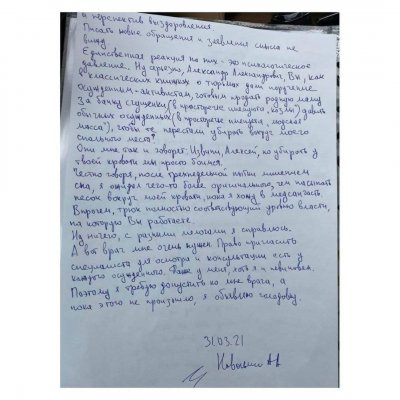 и перспектив выздоровления.
Писать новые обращения и заявления смысла не
вижу
Единственная реакция на них - это психологическое
давление. Ну серьезно, Александр Александрович, Вы, как
в классических книжках о тюрьмах даёт поручение
осужденным-активистам, готовым продать родную маму
за банку сгущенки (в простаречье именуются "козлы") давить
обычных осужденных (в простаречье именуются "мужская
масса"), чтобы те перестали убирать вокруг моего
спального места
Они мне так и говорят: Извини, Алексей, но убирать у
твоей кровати мы просто боимся.
Честно говоря, после трехнедельной пытки лишением
сна, я ожидал чего-то более оригинального, чем насыпать
песок вокруг моей кровати, пока я хожу в медсанчасть.
Впрочем, трюк полностью соответствующий уровню власти,
на которую Вы работаете.
Ну ничего, с разными мелочами я справлюсь.
А вот врач мне очень нужен. Право пригласить
специалиста для осмотра и консультации есть у
каждого осужденного. Даже у меня, хоть я и невиновен.
Поэтому я требую допустить ко мне врача, а
пока этого не произошло, я объявляю голодовку.
31.03.21
Навальный А.А